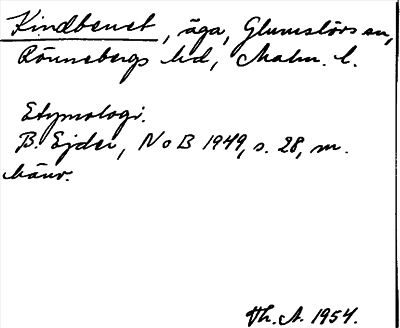 Kindbenet, äga, Glumslövs sn,
Rönnebergs hd, Malm. l.
Etymologi.
B. Ejder, NoB 1949, s. 28, m.
hänv.
Th. A. 1954.